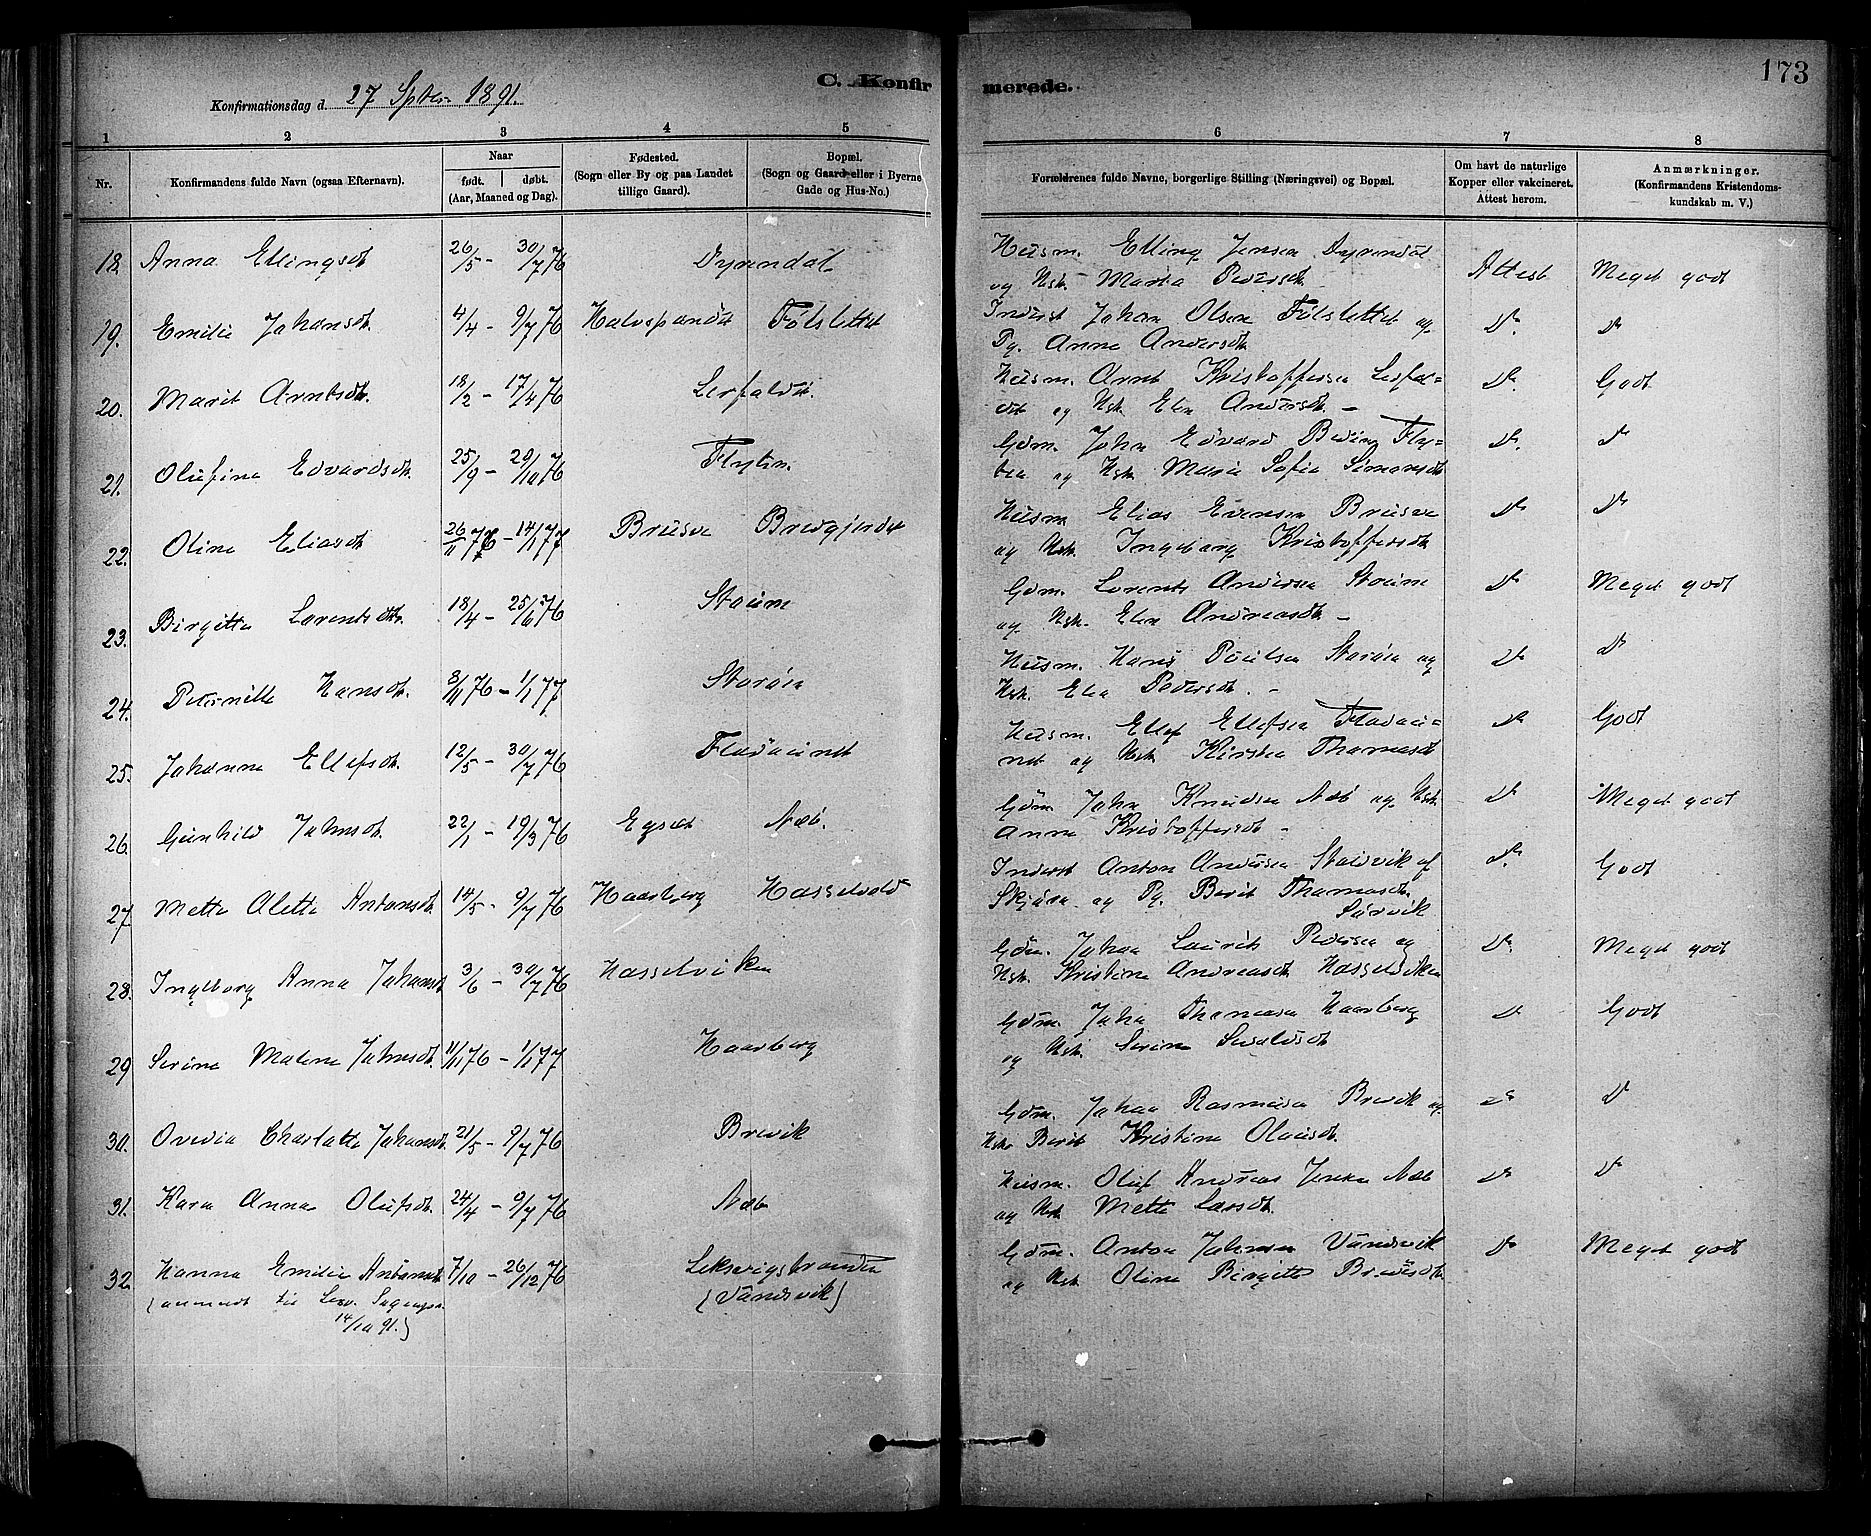 173
C. Konfirmerede.
Konfirmationsdag d. 27 Septbr 1891.
1 2 3 4 5 6 7 8
Nr.
Konfirmandens fulde Navn (ogsaa Efternavn).
Naar
født. | døbt.
(Aar, Maaned og Dag).
Fødested.
(Sogn eller By og paa Landet
tillige Gaard).
Bopæl.
(Sogn og Gaard eller i Byerne
Gade og Hus-No.)
Forældrenes fulde Navne, borgerlige Stilling (Næringsvei) og Bopæl.
Om havt de naturlige
Kopper eller vakcineret.
Attest herom.
Anmærkninger.
(Konfirmandens Kristendoms-
kundskab m. V.)
18. Anna Ellingsdt. 26/5 - 30/7 76 Dyrendal Husm. Elling Jensen Dyrendal Attest Meget godt
og Hst. Marta Pedersdt.
19. Emilie Johansdt. 4/4 - 9/7 76 Følslettet Inderst Johan Olsen Følslettet og D° D°
Pg. Anne Andersdt.
20. Marit Arntsdt. 18/2 - 17/4 76 Lerfaldet Husm. Arnt Kristoffersen Lerfal= D° Godt
det og Hst. Elen Andersdt. -
21. Olufine Edvardsdt. 25/9 - 29/10 76 Flyten Gdm. John Edvard Fly= D° D°
ten og Hst. Maria Sofie Simonsdt
22. Oline Eliasdt. 26/11 76 - 14/1 77 Brusve Bredgjerdet Husm Elias Evensen Brusve D° D°
og Hst. Ingeborg Kristoffersdt
23. Birgitte Lorentsdt. 18/4 - 25/6 76 Staune Gdm. Lorents Andersen Staune D° Meget godt
og Hst. Elen Andreasdt. -
24. Peternille Hansdt. 3/11 76 - 1/1 77. Storøen Husm. Hans Poulsen Storøen og D° D°
Hst. Elen Pedersdt. -
25. Johanna Ellefsdt. 12/5 - 30/7 76 Fladaunet Husm. Ellef Ellefsen Fladau= D° Godt
net og Hst. Kirsten Thomasdt
26. Gunhild Johnsdt. 22/1 - 19/3 76 Næb. Gdm. John Knudsen Næb og Hst. D° Meget godt
Anne Kristoffersdt -
27. Mette Olette Antonsdt. 14/5 - 9/7 76 Haarberg Hasselvold Inderst Anton Andersen Staldvik af D° Godt
Skjørn og Pg. Berit Thomasdt.
Sørvik
28. Ingeborg Anna Johansdt 3/6 - 30/7 76 Hasselviken Gdm. Johan Laurits Pedersen og D° Meget godt
Hst. Kristine Andreasdt Hasselviken
29 Serine Malene Johnsdt. 11/11 76 - 1/1 77 Haarberg Gdm. John Thomasen Haarberg D° Godt
og Hst. Serine Sivaldsdt
30. Ovedia Charlotte Johansdt. 21/5 - 9/7 76 Brevik Gdm. Johan Rasmusen Brevik og D° D°
Hst. Berit Kristine Olausdt.
31. Karen Anna Olufsdt. 24/4 - 9/7 76 Næb Husm. Oluf Andreas Jensen Næb D° D°
og Hst Mette Larsdt.
32. Hanna Emilie Antonsdt 7/10 - 26/12 76 Leksvigstranden Gdm. Anton Johnsen Vandvik D° Meget godt
(Vandvik) og Hst. Oline Birgitte
(anmeldt til Lexv. Sognepr.
14/10 91.)